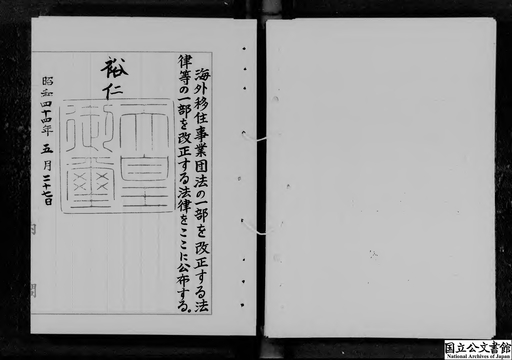 海外移住事業団法の一部を改正する法
律等の一部を改正する法律をここに公布する。
裕仁
天皇
御璽
昭和四十四年五月二十七日
国立公文書館
National Archives of Japan